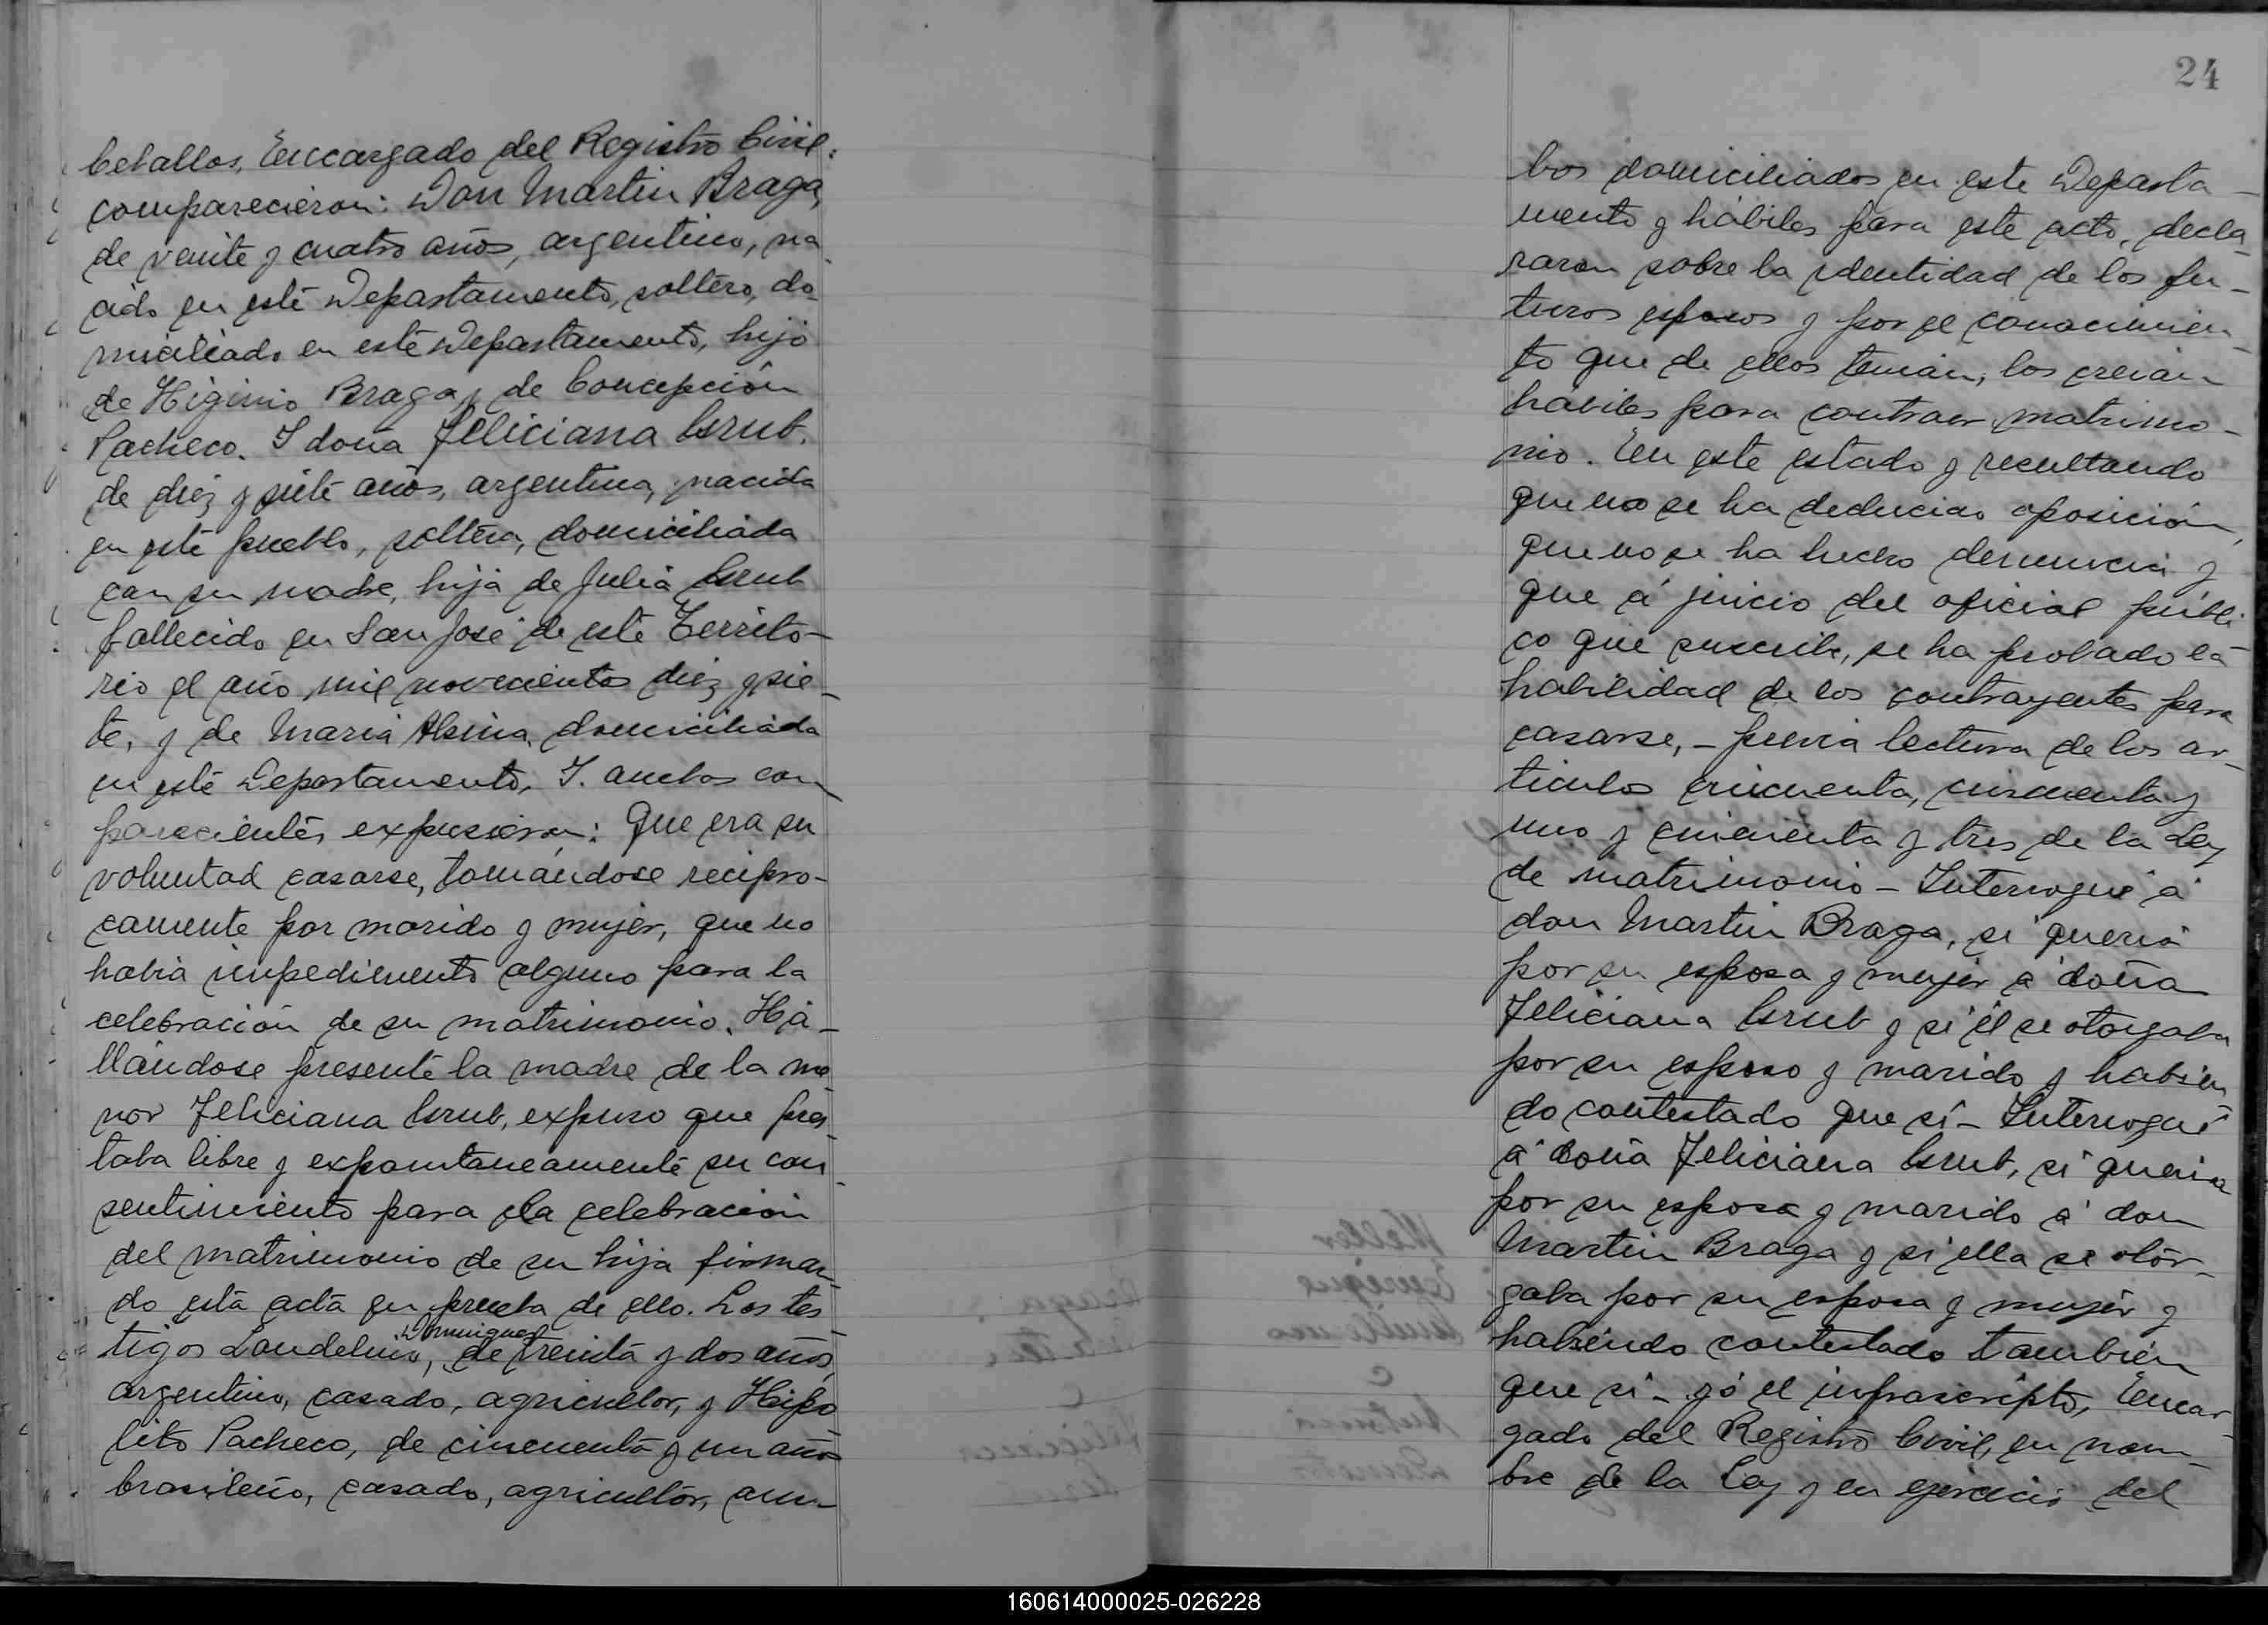 Ceballos, Encargado del Registro Civil:
comparecieron: Don Martin Braga,
de veinte y cuatro años, argentino, na
cido en este Departamento, soltero, do-
miciliado en este Departamento, hijo
de Higinio Braga y de Concepción
Pacheco. I doña Feliciana
de diez y siete años, argentina, nacida
en este pueblo, soltera, domiciliada
con su madre, hija de
fallecido en San José de este Territo-
rio el año mil novecientos diez y sie-
te, y de Maria Alsina, domiciliada
en este Departamento, I. ambos com
parecientes expusieron: Que era su
voluntad casarse, tomándose recipro-
camente por marido y mujer, que no
habia impedimento alguno para la
celebración de su matrimonio. Ha-
llándose presente la madre de la me-
nor Feliciana expuso que pres-
taba libre y expontaneamente su con
sentimiento para la celebración
del matrimonio de su hija firman-
do esta acta en prueba de ello. Los tes
Dominguez
tigos Laudelino, de treinta y dos años,
argentino, casado, agricultor, y Hipó
lito Pacheco, de cincuenta y un años
brasileño, casado, agricultor, am-
24
bos domiciliados en este Departa-
mento y hábiles para este acto, decla-
raron sobre la identidad de los fu-
turos esposos y por el conocimien-
to que de ellos tenian, los creian
habiles para contraer matrimo-
nio. En este estado y resultando
que no se ha deducido oposición,
que no se ha hecho denuncia y
que á juicio del oficial públi-
co que suscribe, se ha probado la
habilidad de los contrayentes para
casarse, - previa lectura de los ar-
ticulos cincuenta, cincuenta y
uno y cincuenta y tres de la Ley
de matrimonio - Interrogué á
don Martin Braga, si queria
por su esposa y mujer á doña
Feliciana y si él se otorgaba
por su esposo y marido y habien
do contestado que sí - Interrogué
á doña Feliciana si queria
por su esposo y marido á don
Martin Braga y si ella se otor-
gaba por su esposa y mujer y
habiendo contestado tambien
que si - yó el infrascripto, Encar-
gado del Registro Civil, en nom-
bre de la Ley y en ejercicio del
160614000025-026228